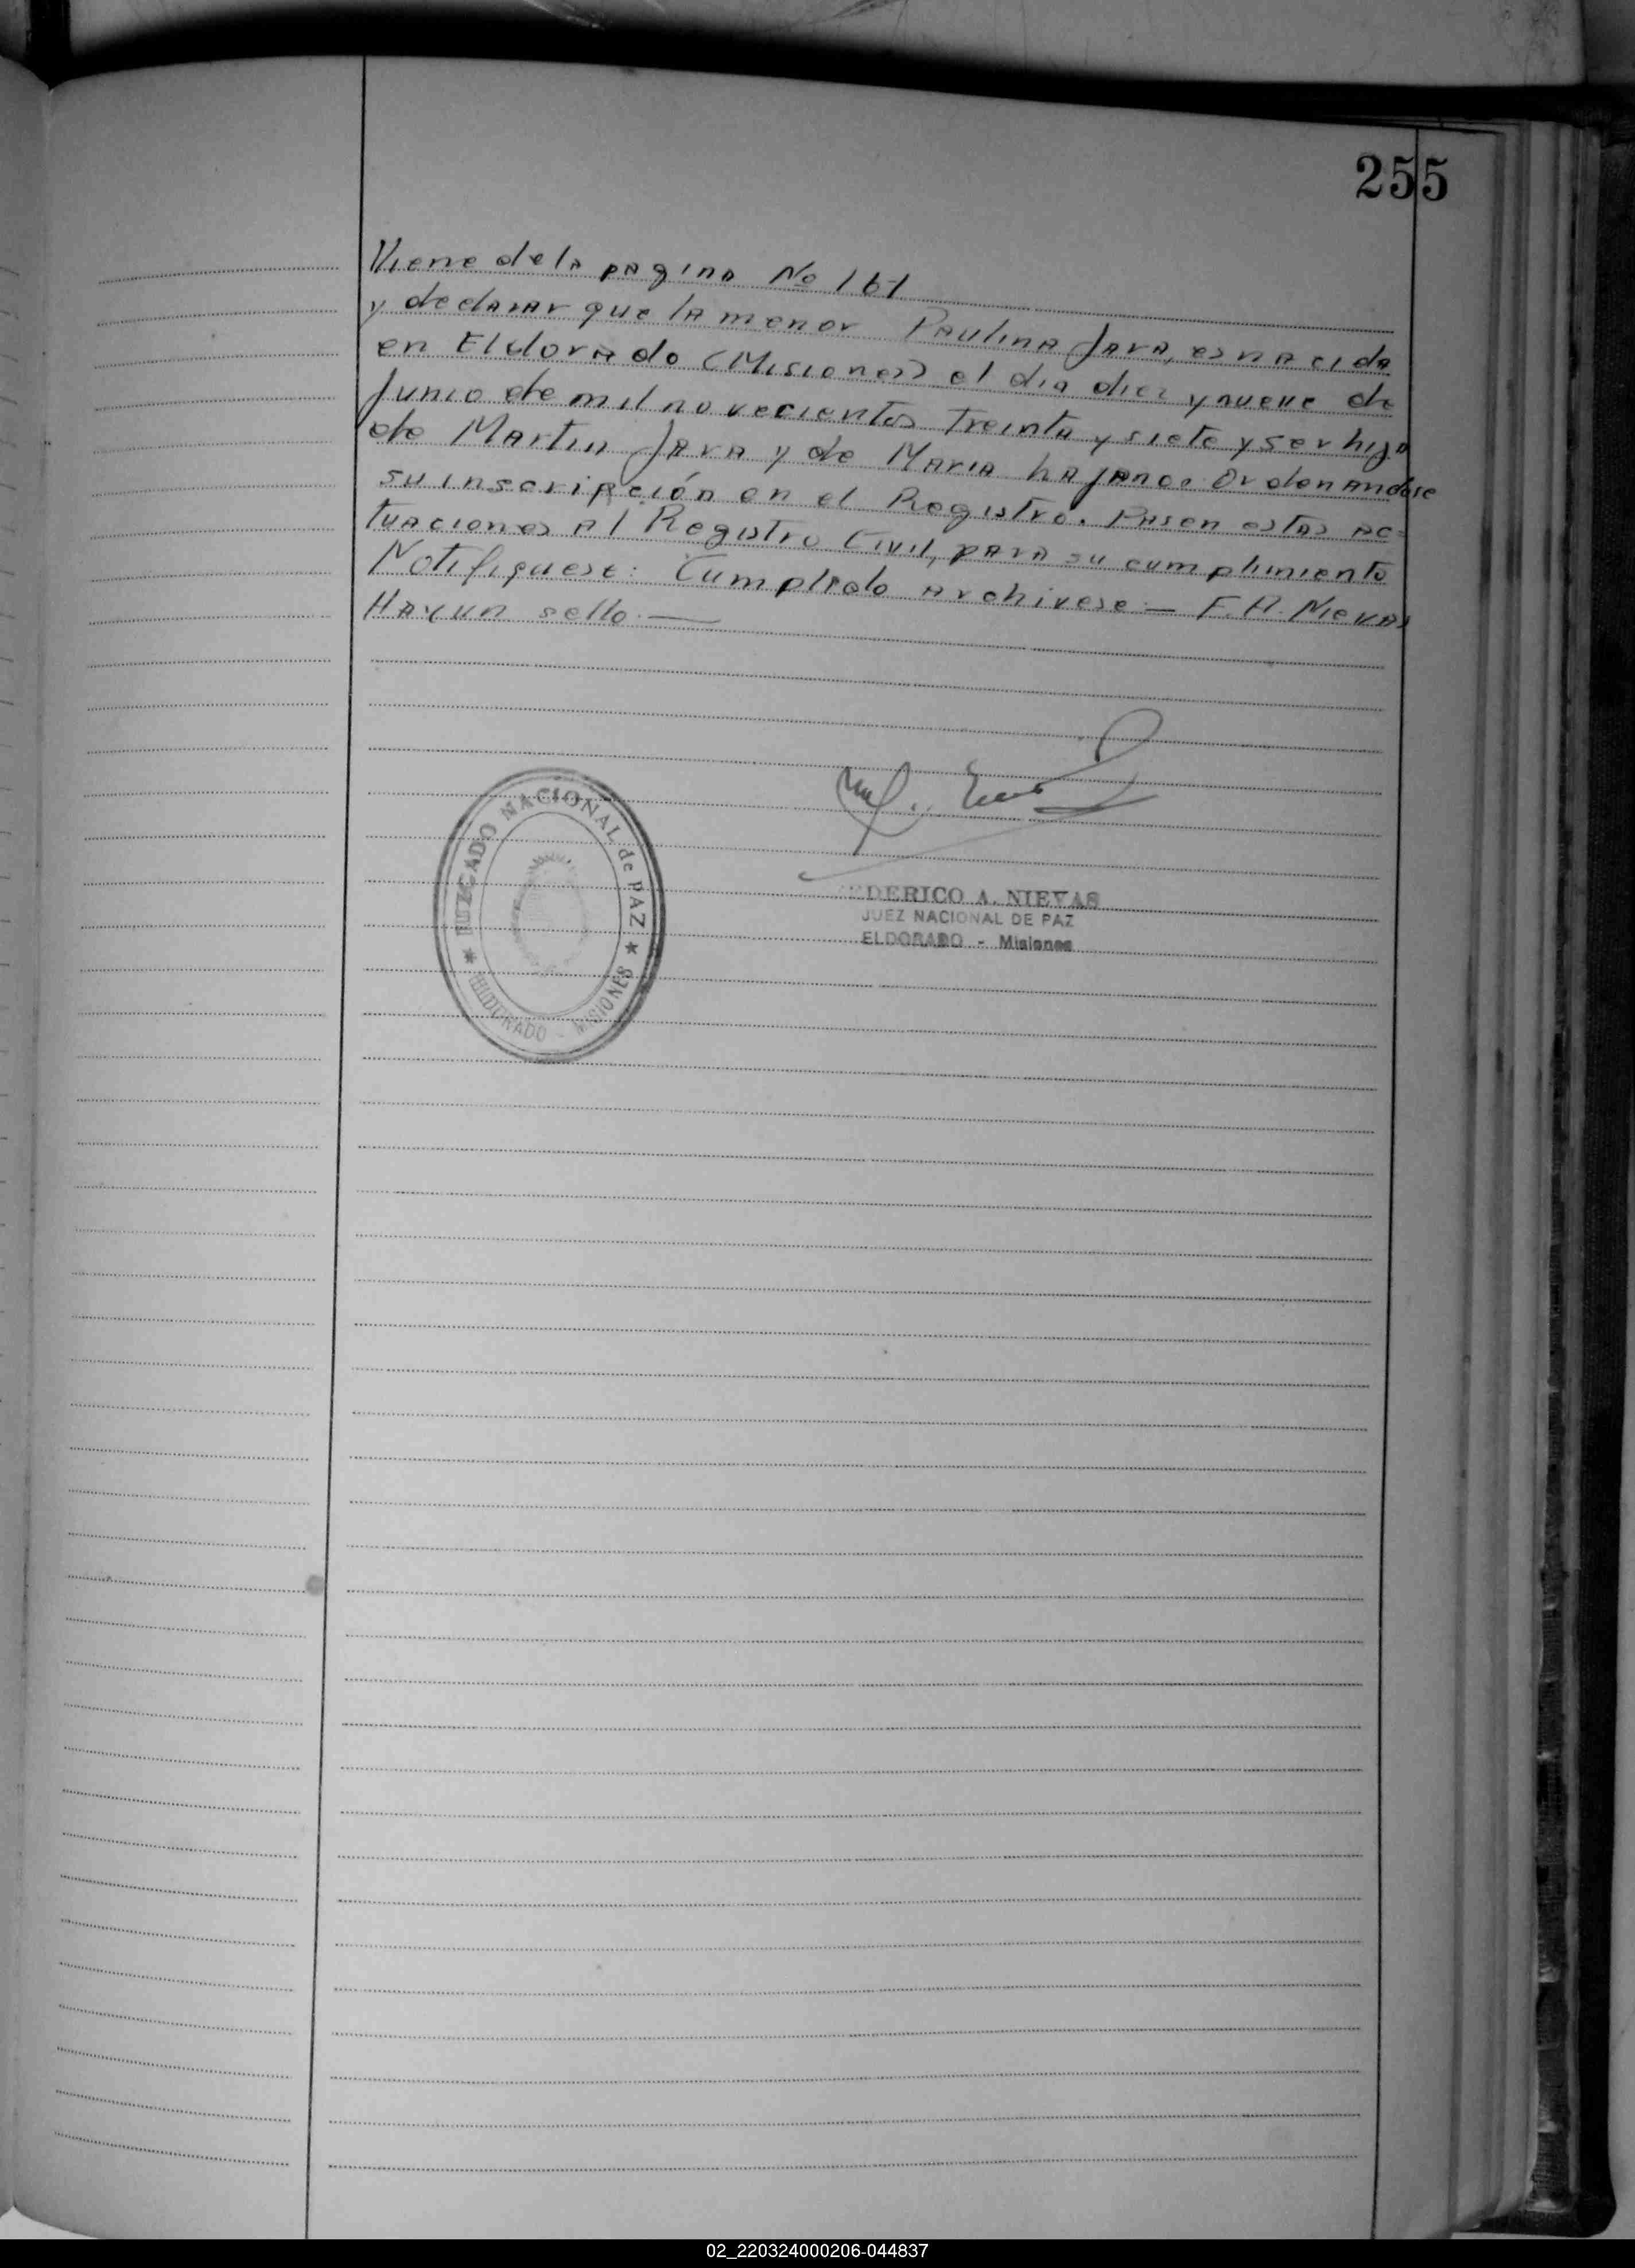 255
Viene dela pagina No 161
y declarar que la menor Paulina Jara, es nacida
en Eldorado (Misiones) el dia diez y nueve de
Junio de mil novecientos Treinta y siete y ser hija
de Martin Jara y de Maria Lajano. Ordenandose
su inscripción en el Registro. Pasen estas ac-
tuaciones al Registro Civil, para su cumplimiento
Notifiquese: Cumplido archivese — F. A. Nievas
Hay un sello. —
JUZGADO NACIONAL de PAZ
ELDORADO - MISIONES
FEDERICO A. NIEVAS
JUEZ NACIONAL DE PAZ
ELDORADO - Misiones
02_220324000206-044837